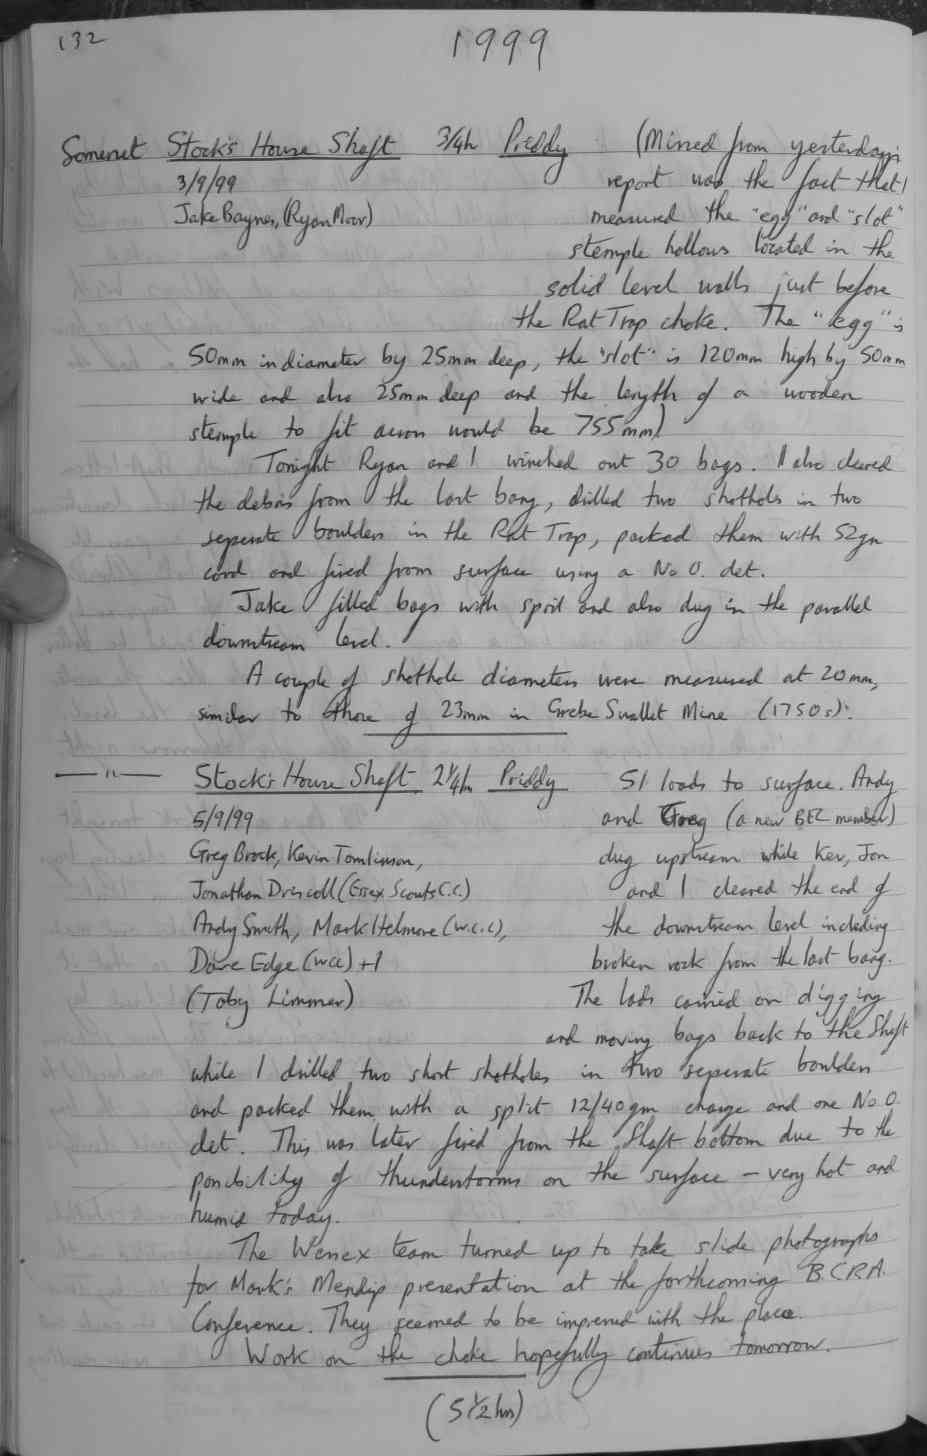 132
1999
Somerset Stock's House Shaft 3/4h Priddy (Missed from yesterday's
3/9/99 report was the fact that I
Jake Baynes, (Ryan Moor) measured the "egg" and "slot"
stemple hollows located in the
solid level walls just before
the Rat Trap choke. The "egg" is
50mm in diameter by 25mm deep, the "slot" is 120mm high by 50mm
wide and also 25mm deep and the length of a wooden
stemple to fit across would be 755mm)
Tonight Ryan and I winched out 30 bags. I also cleared
the debris from the last bang, drilled two shotholes in two
seperate boulders in the Rat Trap, packed them with 52gm
cord and fired from surface using a No 0. det.
Jake filled bags with spoil and also dug in the parallel
downstream level.
A couple of shothole diameters were measured at 20mm,
similar to those of 23mm in Grebe Swallet Mine (1750s).
— " — Stock's House Shaft 2 1/4h Priddy 51 loads to surface. Andy
5/9/99 and Greg (a new BEC member)
Greg Brock, Kevin Tomlinson, dug upstream while Kev, Jon
Jonathan Driscoll (Essex Scouts C.C.) and I cleared the end of
Andy Smith, Mark Helmore (W.C.C), the downstream level including
Dave Edge (WCC) +1 broken rock from the last bang.
(Toby Limmer) The lads carried on digging
and moving bags back to the Shaft
while I drilled two short shotholes in two seperate boulders
and packed them with a split 12/40gm charge and one No 0.
det. This was later fired from the Shaft bottom due to the
possibility of thunderstorms on the surface – very hot and
humid today.
The Wessex team turned up to take slide photographs
for Mark's Mendip presentation at the forthcoming B.C.R.A.
Conference. They seemed to be impressed with the place.
Work on the choke hopefully continues tomorrow.
(5 1/2 hrs)